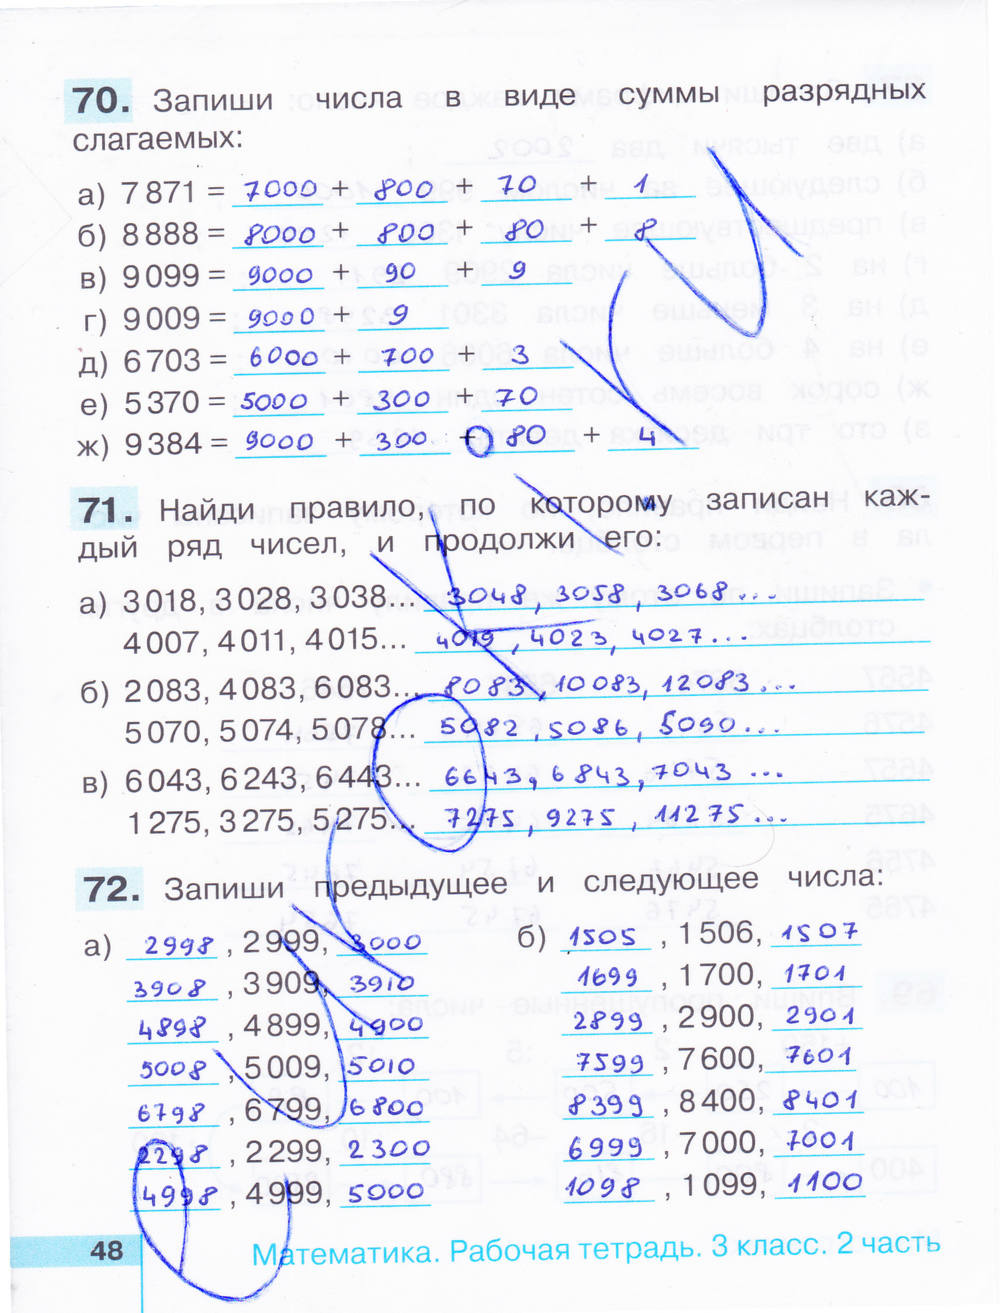 70. Запиши числа в виде суммы разрядных
слагаемых:
а) 7 871 = 7000 + 800 + 70 + 1
б) 8 888 = 8000 + 800 + 80 + 8
в) 9 099 = 9000 + 90 + 9
г) 9 009 = 9000 + 9
д) 6 703 = 6000 + 700 + 3
е) 5 370 = 5000 + 300 + 70
ж) 9 384 = 9000 + 300 + 80 + 4
71. Найди правило, по которому записан каж-
дый ряд чисел, и продолжи его:
а) 3 018, 3 028, 3 038... 3048, 3058, 3068...
4 007, 4 011, 4 015... 4019, 4023, 4027...
б) 2 083, 4 083, 6 083... 8083, 10083, 12083...
5 070, 5 074, 5 078... 5082, 5086, 5090...
в) 6 043, 6 243, 6 443... 6643, 6843, 7043...
1 275, 3 275, 5 275... 7275, 9275, 11275...
72. Запиши предыдущее и следующее числа:
а) 2998, 2 999, 3000
3908, 3 909, 3910
4898, 4 899, 4900
5008, 5 009, 5010
6798, 6 799, 6800
2298, 2 299, 2300
4998, 4 999, 5000
б) 1505, 1 506, 1507
1699, 1 700, 1701
2899, 2 900, 2901
7599, 7 600, 7601
8399, 8 400, 8401
6999, 7 000, 7001
1098, 1 099, 1100
48 Математика. Рабочая тетрадь. 3 класс. 2 часть